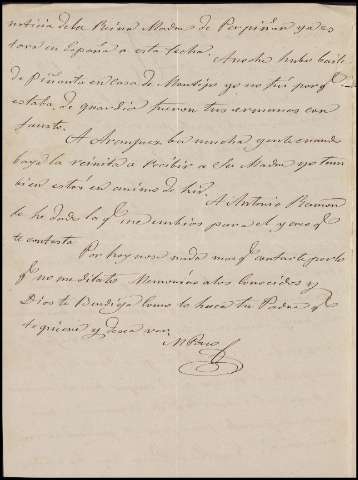 noticia de la Reina Madre de Perpiñan ya es
tara en España a esta fecha.
Anoche hubo baile
de Piñanta en casa de Montijo yo no fui porq.e
estaba de guardia fueron tus ermanos con
fausto.
A Aranjuez ba mucha gente cuando
baya la reinita a recibir a Su Madre yo tam
bien estoy en animo de hir.
A Antonio Ramon
le he dado la q.e me embios para el y creo q.e
te contesta.
Por hoy no se nada mas q.e contarte por lo
q.e no me dilato Memorias a los conocidos y
Dios te Bendiga como lo hace tu Padre q.e
te quiere y desea ver,